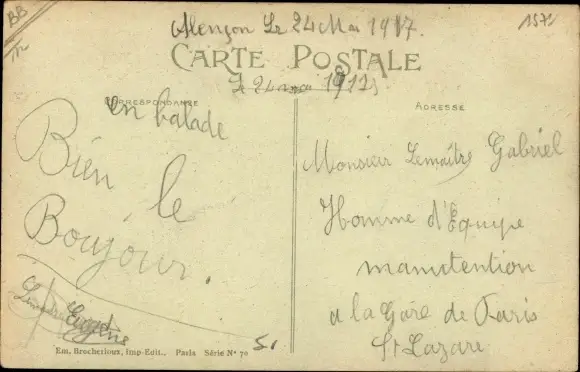 BB
1571
Alençon Le 24 Mai 1917.
CARTE POSTALE
1912
CORRESPONDANCE
en balade
Bien le
Boujour.
Eugène
Em. Brocherioux, Imp-Edit., Paris Série N° 70
ADRESSE
Monsieur Lemaître Gabriel
Homme d'Equipe
manutention
a la Gare de Paris
St Lazare